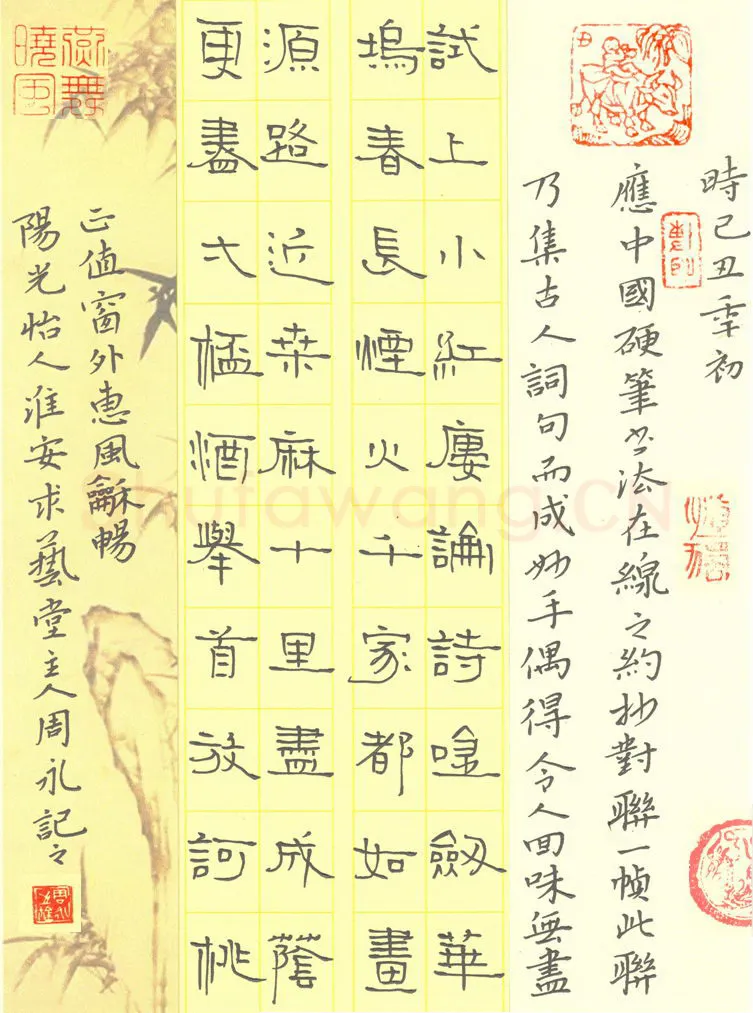 時己丑年初
應中國硬筆书法在線之約抄對聯一幀此聯
乃集古人詞句而成妙手偶得令人回味無盡
試上小紅廔論詩唫劔華
塢春長煙火千家都如畫
源路近桒麻十里盡成蔭
更盡弌桮酒舉首放訶桃
正值窗外惠風龢暢
陽光怡人淮安求藝堂主人周永記之
燕舞
曉風
shufawang.CN